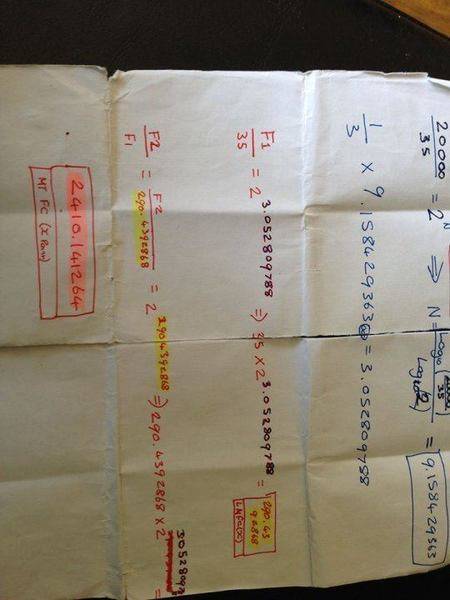 20000/35 = 2^N ⇒ N = Log10 (20000/35) / Log10(2) = 9.158429363
1/3 × 9.158429363 = 3.052809788
F1/35 = 2^3.052809788 ⇒ 35 × 2^3.052809788 = 290.4392868
LMFC(X)
F2/F1 = F2/290.4392868 = 2^290.4392868 ⇒ 290.4392868 × 2 =
2410.141264
MT FC (X Pain)